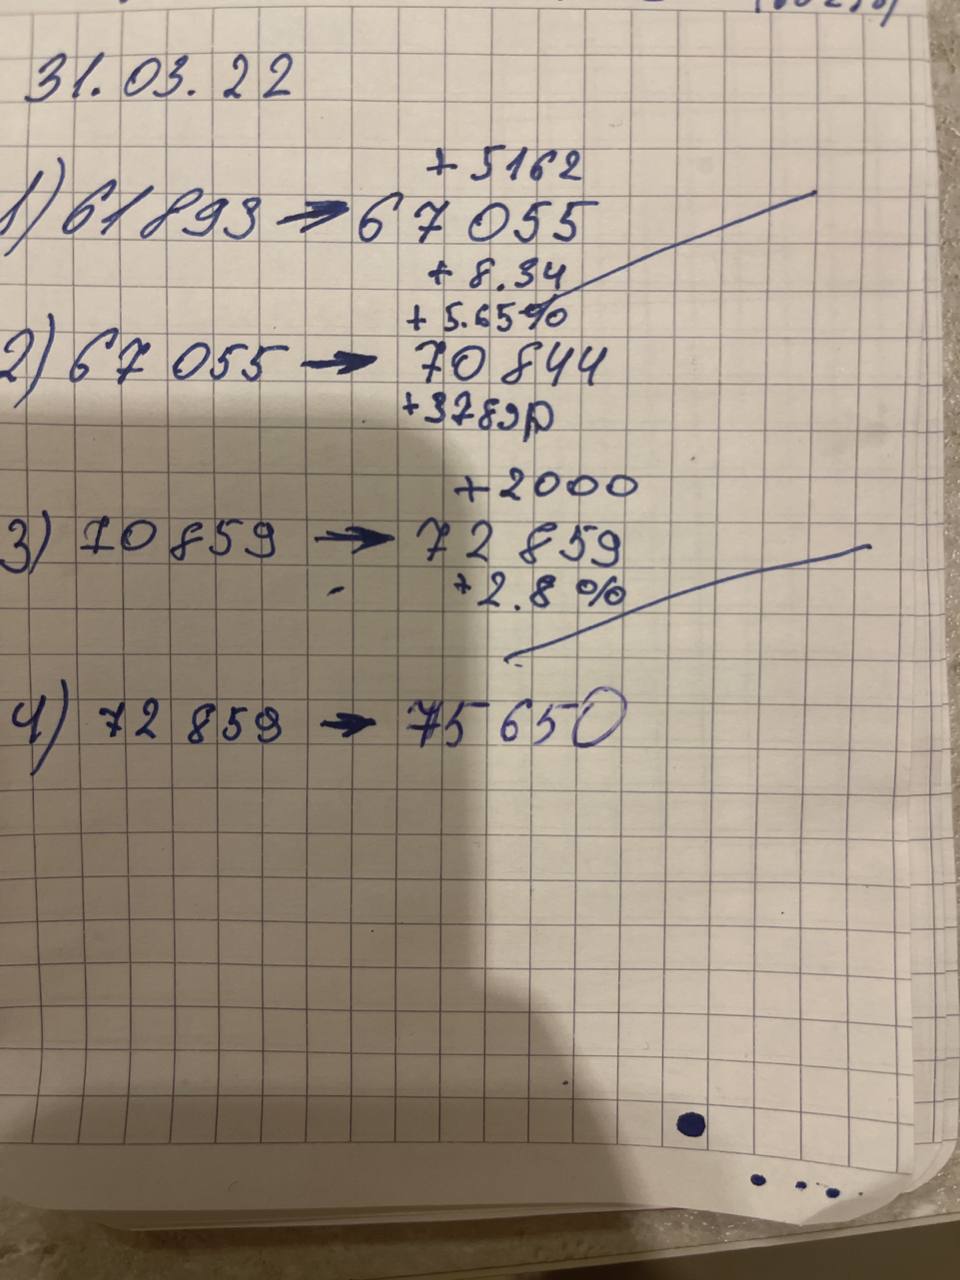 31.03.22
+ 5162
1) 61 893 → 67 055
+ 8.34
+ 5.65%
2) 67 055 → 70 844
+3789р
+2000
3) 70 859 → 72 859
+2.8 %
4) 72 859 → 75 650